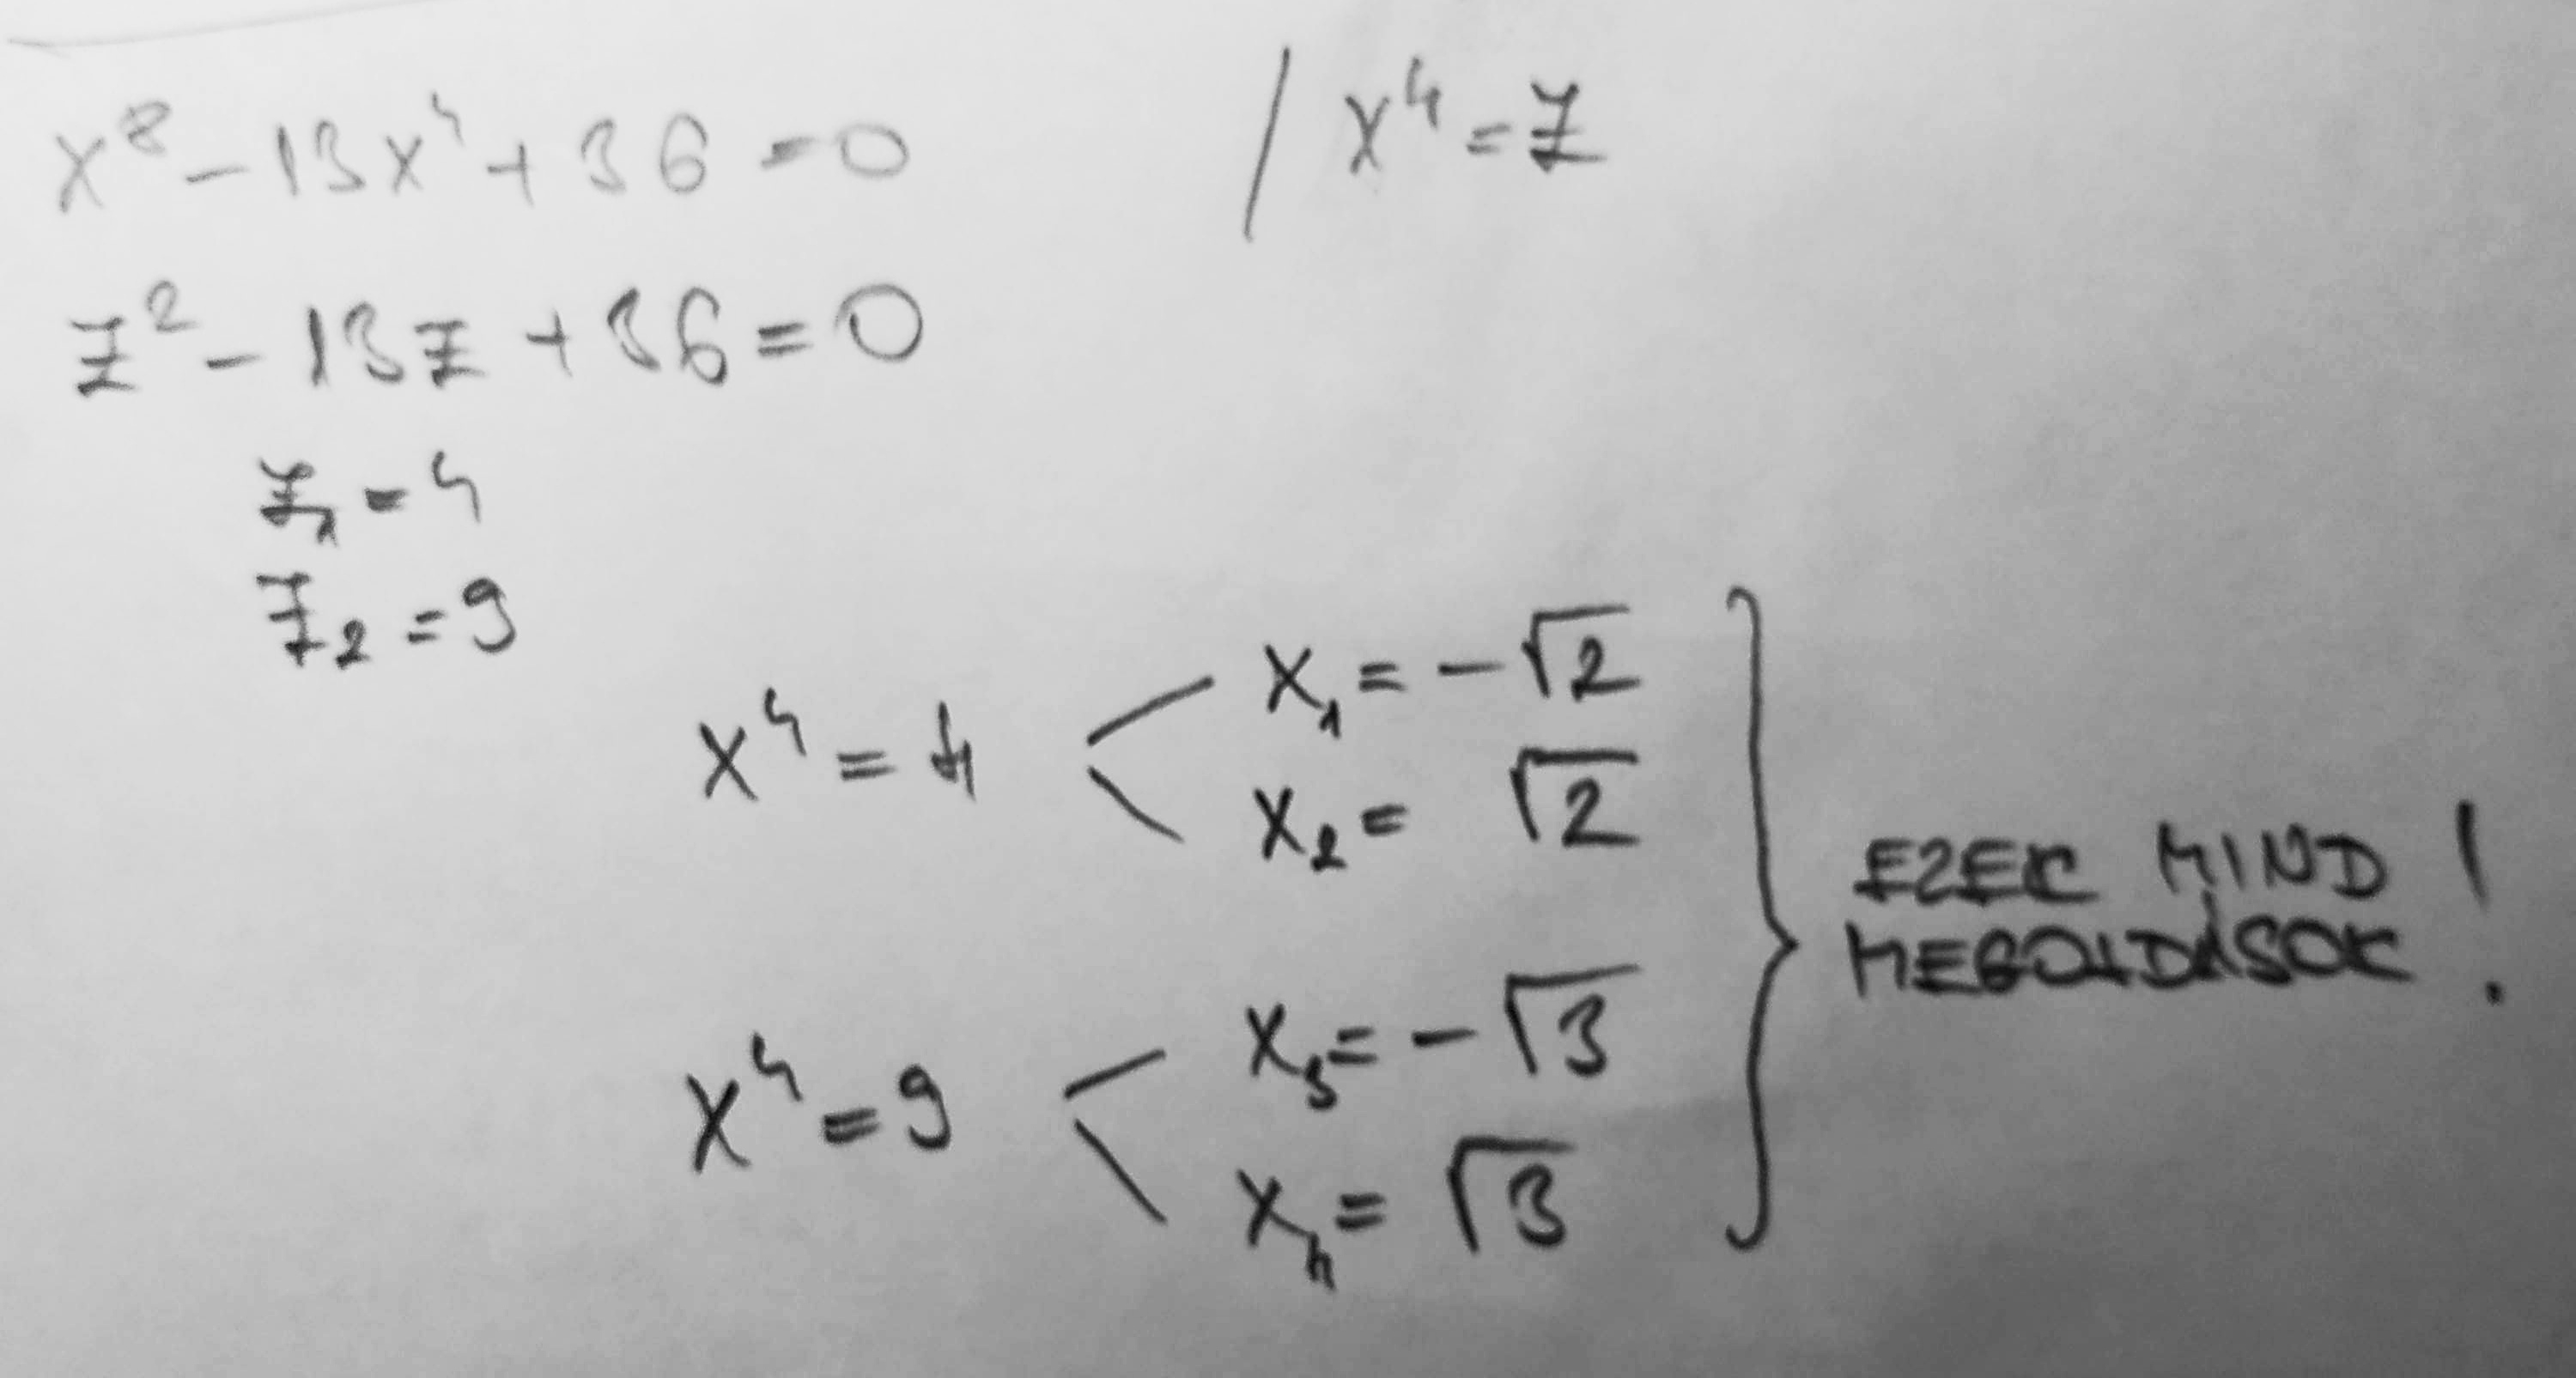 x⁸ - 13x⁴ + 36 = 0 / x⁴ = z
z² - 13z + 36 = 0
z₁ = 4
z₂ = 9
x⁴ = 4
x₁ = -√2
x₂ = √2
x⁴ = 9
x₃ = -√3
x₄ = √3
EZEK MIND
MEGOLDÁSOK!